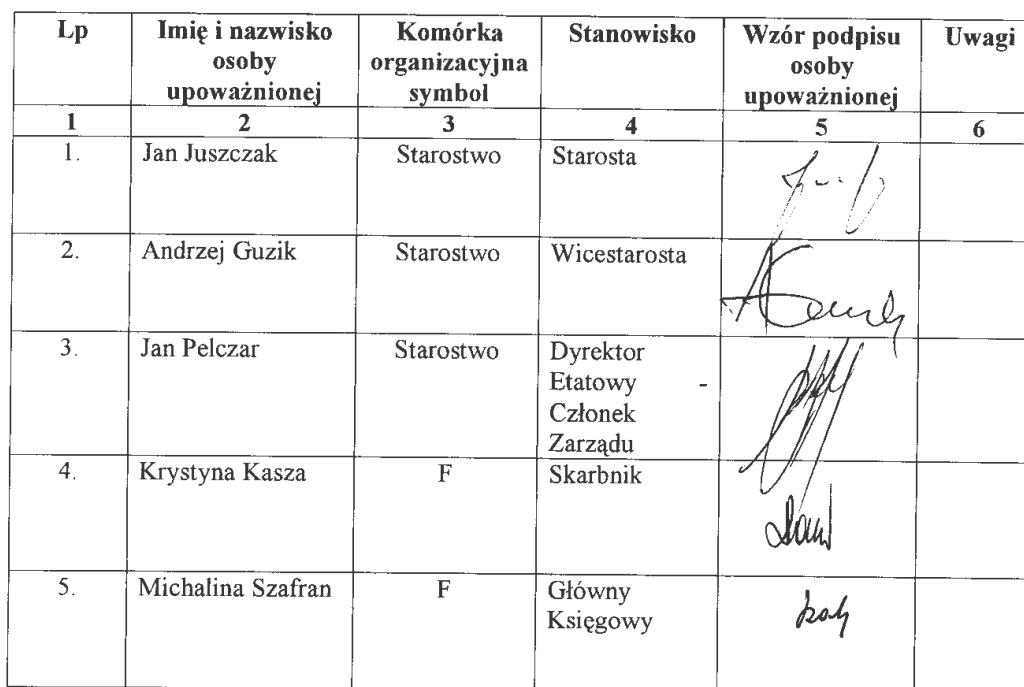 Lp Imię i nazwisko osoby upoważnionej Komórka organizacyjna symbol Stanowisko Wzór podpisu osoby upoważnionej Uwagi
1 2 3 4 5 6
1. Jan Juszczak Starostwo Starosta
2. Andrzej Guzik Starostwo Wicestarosta
3. Jan Pelczar Starostwo Dyrektor
Etatowy -
Członek
Zarządu
4. Krystyna Kasza F Skarbnik
5. Michalina Szafran F Główny
Księgowy